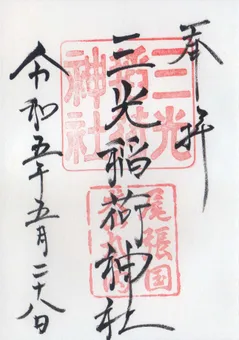 奉拝
三光稲荷神社
三光稲荷神社
尾張国
令和五年五月二十八日